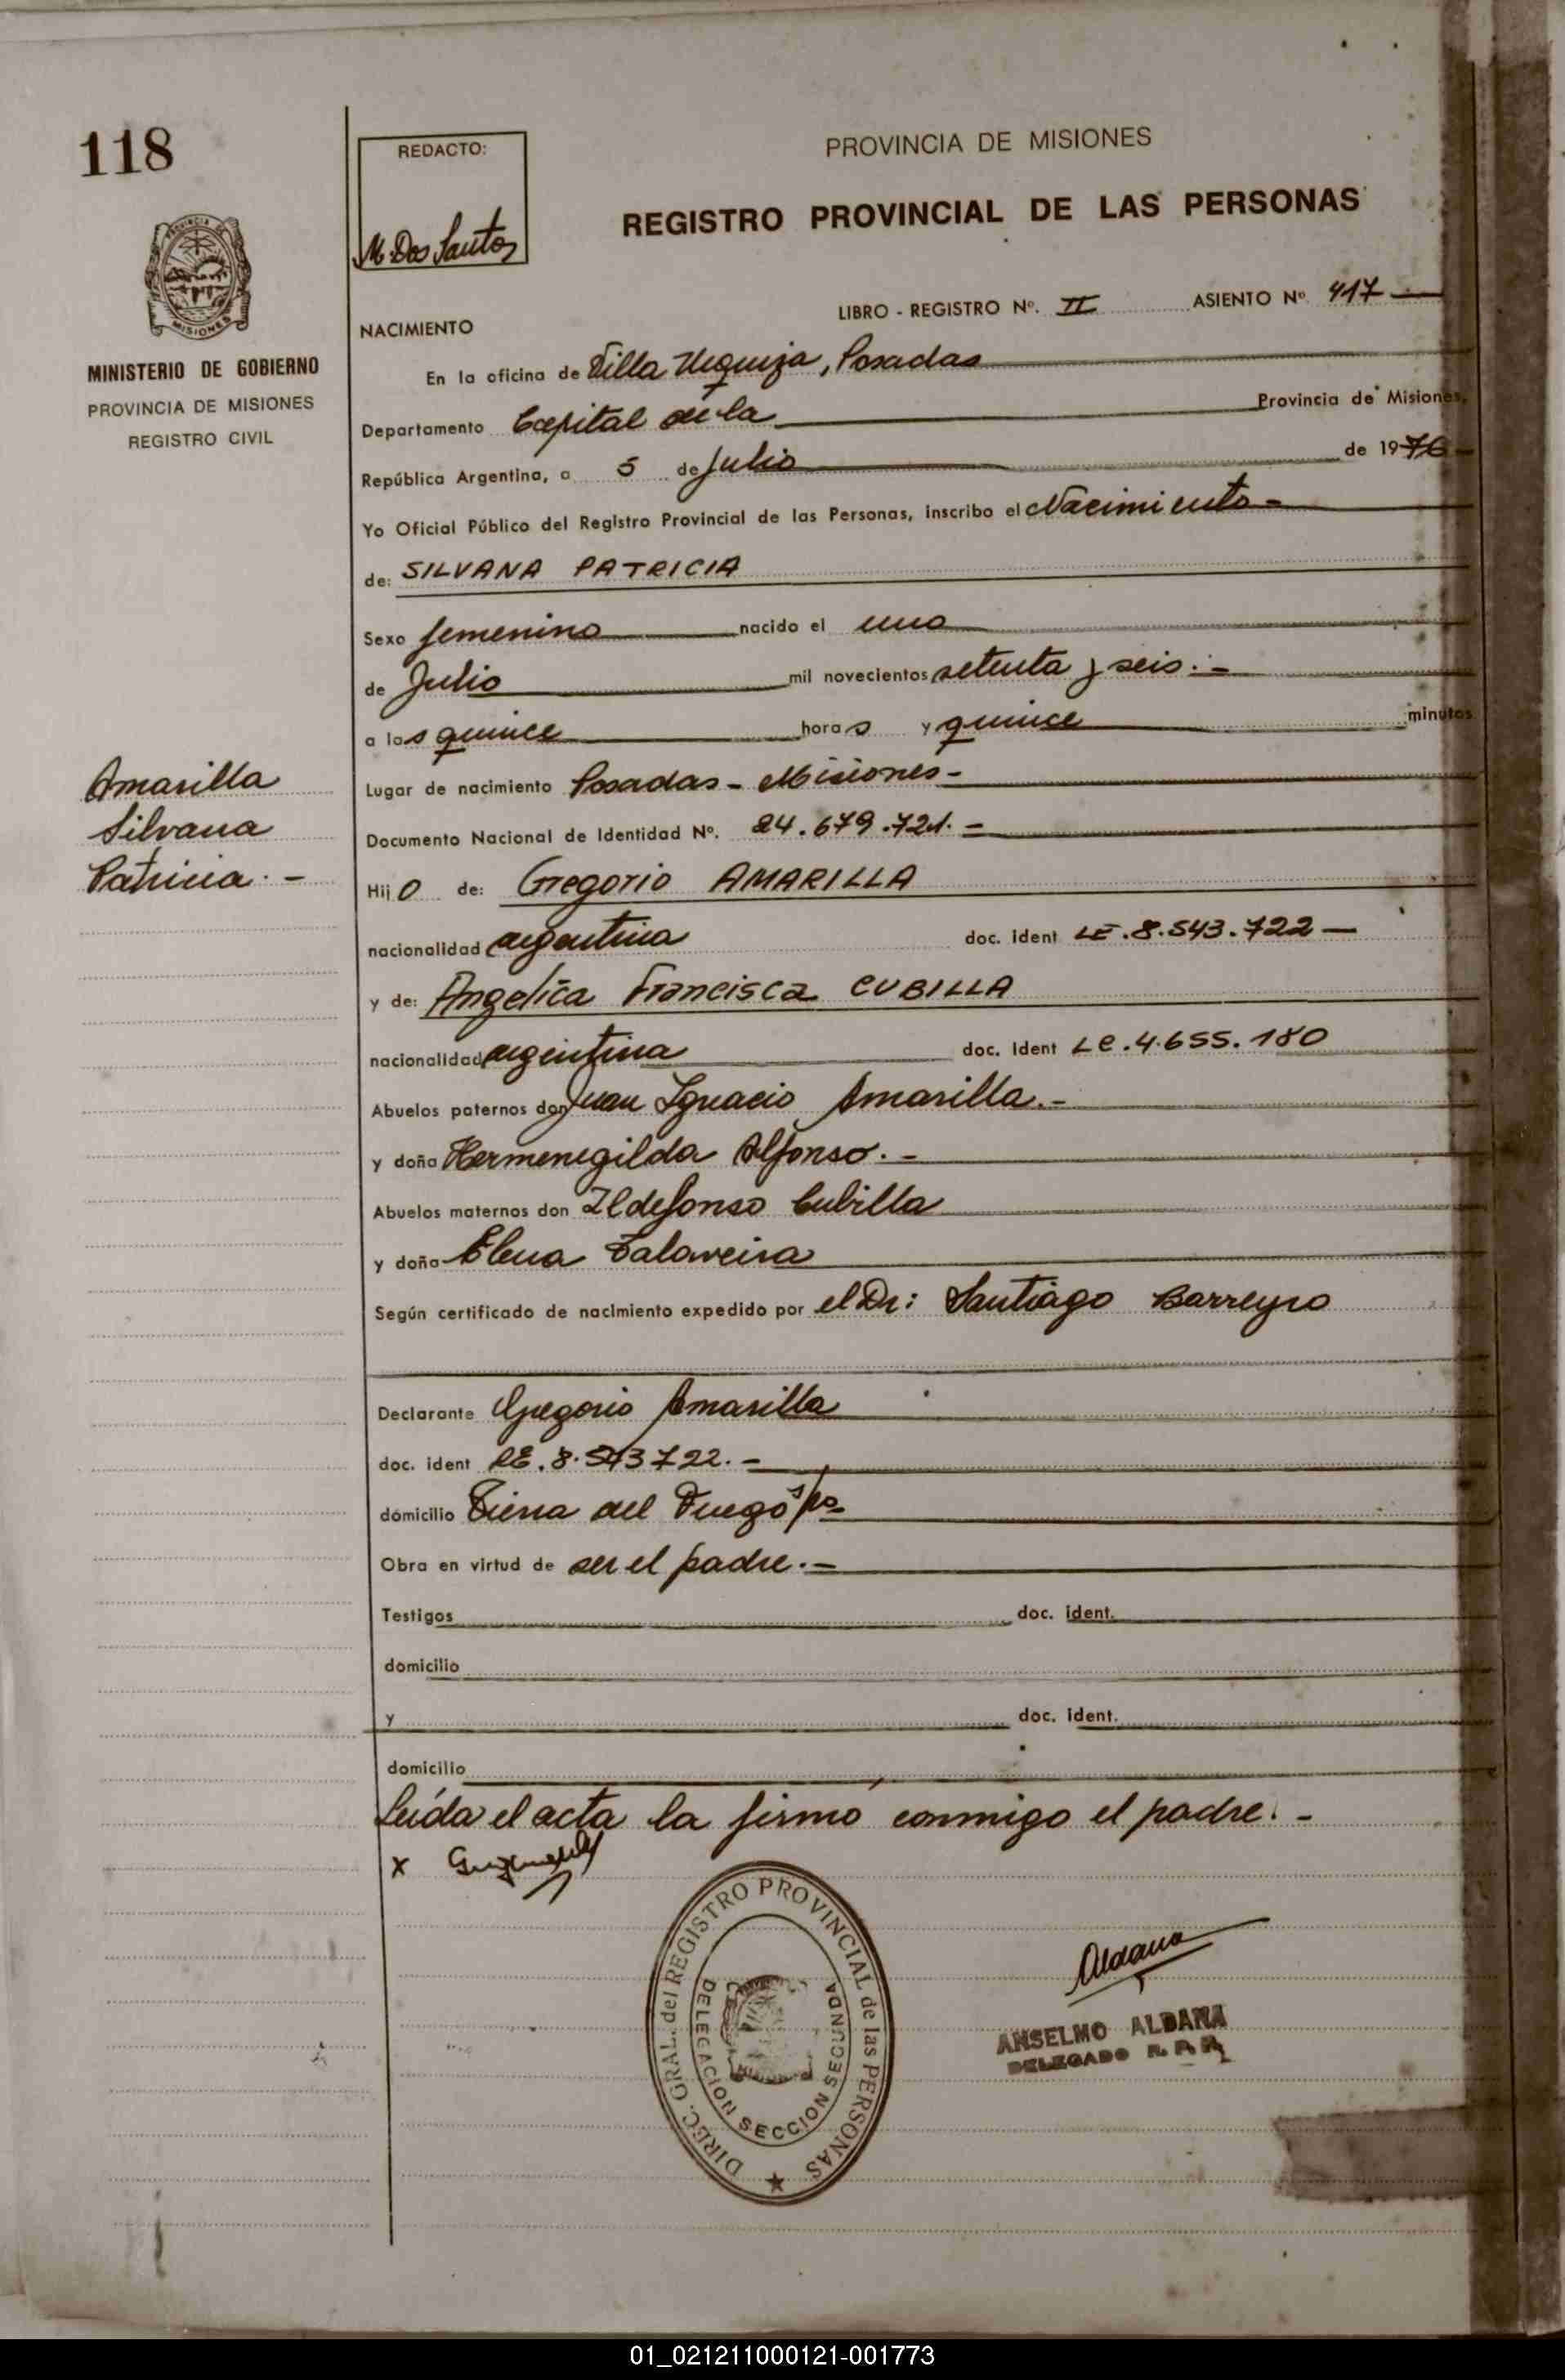 118
REDACTO:
M. Dos Santos
PROVINCIA DE MISIONES
REGISTRO PROVINCIAL DE LAS PERSONAS
MISIONES
MINISTERIO DE GOBIERNO
PROVINCIA DE MISIONES
REGISTRO CIVIL
LIBRO - REGISTRO Nº. II ASIENTO Nº 417 —
NACIMIENTO
En la oficina de Villa Urquiza, Posadas
Departamento Capital de la Provincia de Misiones,
República Argentina, a 5 de Julio de 1976 -
Yo Oficial Público del Registro Provincial de las Personas, inscribo el Nacimiento -
de: SILVANA PATRICIA
Sexo femenino nacido el uno
de Julio mil novecientos setenta y seis. -
a las quince horas y quince minutos
Amarilla
Silvana
Patricia. -
Lugar de nacimiento Posadas - Misiones -
Documento Nacional de Identidad Nº. 24.679.721. -
Hijo de: Gregorio AMARILLA
nacionalidad argentina doc. ident LE.8.543.722 —
y de: Angelica Francisca CUBILLA
nacionalidad argentina doc. Ident LC.4.655.180
Abuelos paternos don Juan Ignacio Amarilla. -
y doña Hermenegilda Alfonso. -
Abuelos maternos don Ildefonso Cubilla
y doña Elena Talaveira
Según certificado de nacimiento expedido por el Dr: Santiago Barreyro
Declarante Gregorio Amarilla
doc. ident LE.8.543722. -
domicilio Tierra del Fuego
Obra en virtud de ser el padre. -
Testigos doc. ident.
domicilio
y doc. ident.
domicilio
Leída el acta la firmó conmigo el padre. -
x
DIREC. GRAL. del REGISTRO PROVINCIAL de las PERSONAS
DELEGACION SECCION SEGUNDA
Aldana
ANSELMO ALDANA
DELEGADO R. P. P.
01_021211000121-001773